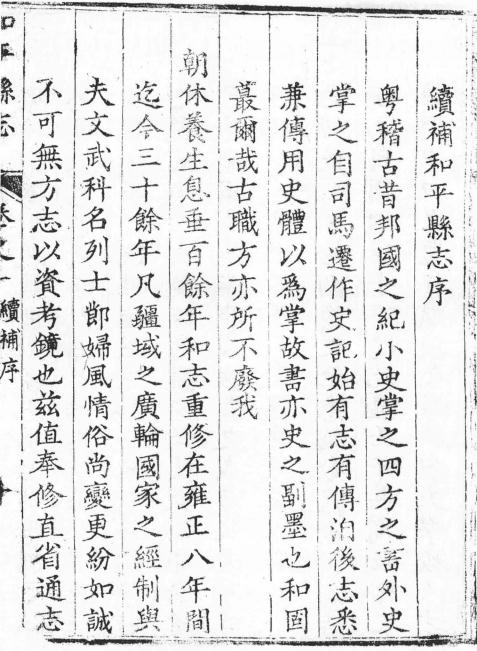 續補和平縣志序
粤稽古昔邦國之紀小史掌之四方之書外史
掌之自司馬遷作史記始有志有傳洎後志悉
兼傳用史體以爲掌故書亦史之副墨也和固
蕞爾哉古職方亦所不廢我
朝休養生息垂百餘年和志重修在雍正八年間
迄今三十餘年凡疆域之廣輪國家之經制與
夫文武科名列士節婦風情俗尚變更紛如誠
不可無方志以資考鏡也兹值奉修直省通志
和平縣志 卷之一 續補序